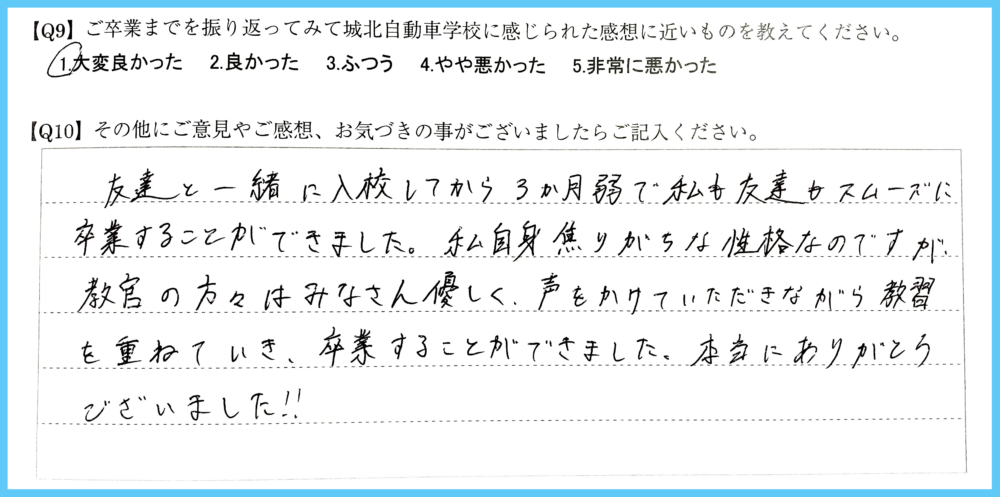 【Q9】ご卒業までを振り返ってみて城北自動車学校に感じられた感想に近いものを教えてください。
1.大変良かった 2.良かった 3.ふつう 4.やや悪かった 5.非常に悪かった
【Q10】その他にご意見やご感想、お気づきの事がございましたらご記入ください。
友達と一緒に入校してから3か月弱で私も友達もスムーズに
卒業することができました。私自身焦りがちな性格なのですが、
教官の方々はみなさん優しく、声をかけていただきながら教習
を重ねていき、卒業することができました。本当にありがとう
ございました!!